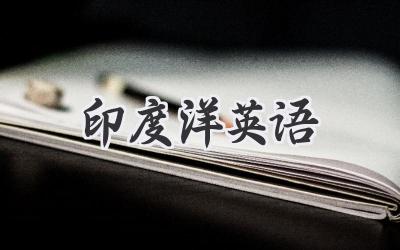 印度洋英语